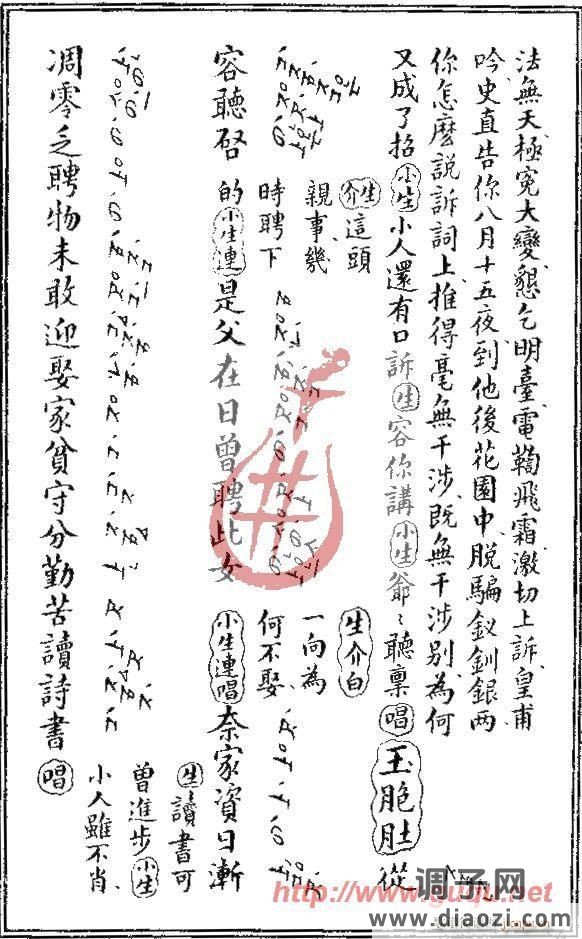 法無天極冤大變懇乞明臺電鞫飛霜激切上訴皇甫
吟史直告你八月十五夜到他後花園中脱騙釵釧銀两
你怎麽説訴詞上推得毫無干涉既無干涉别為何
又成了招小生小人還有口訴生容你講小生爺〻聽禀唱玉胞肚從
容聽啓
生介這頭
親事幾
時聘下
的小生連是父在日曾聘此女
生介白
一向為
何不娶
小生連唱奈家資日漸
凋零乏聘物未敢迎娶家貧守分勤苦讀詩書唱
生讀書可
曾進步小生
小人雖不肖
http://www.guqu.net
调子网
www.diaozi.com